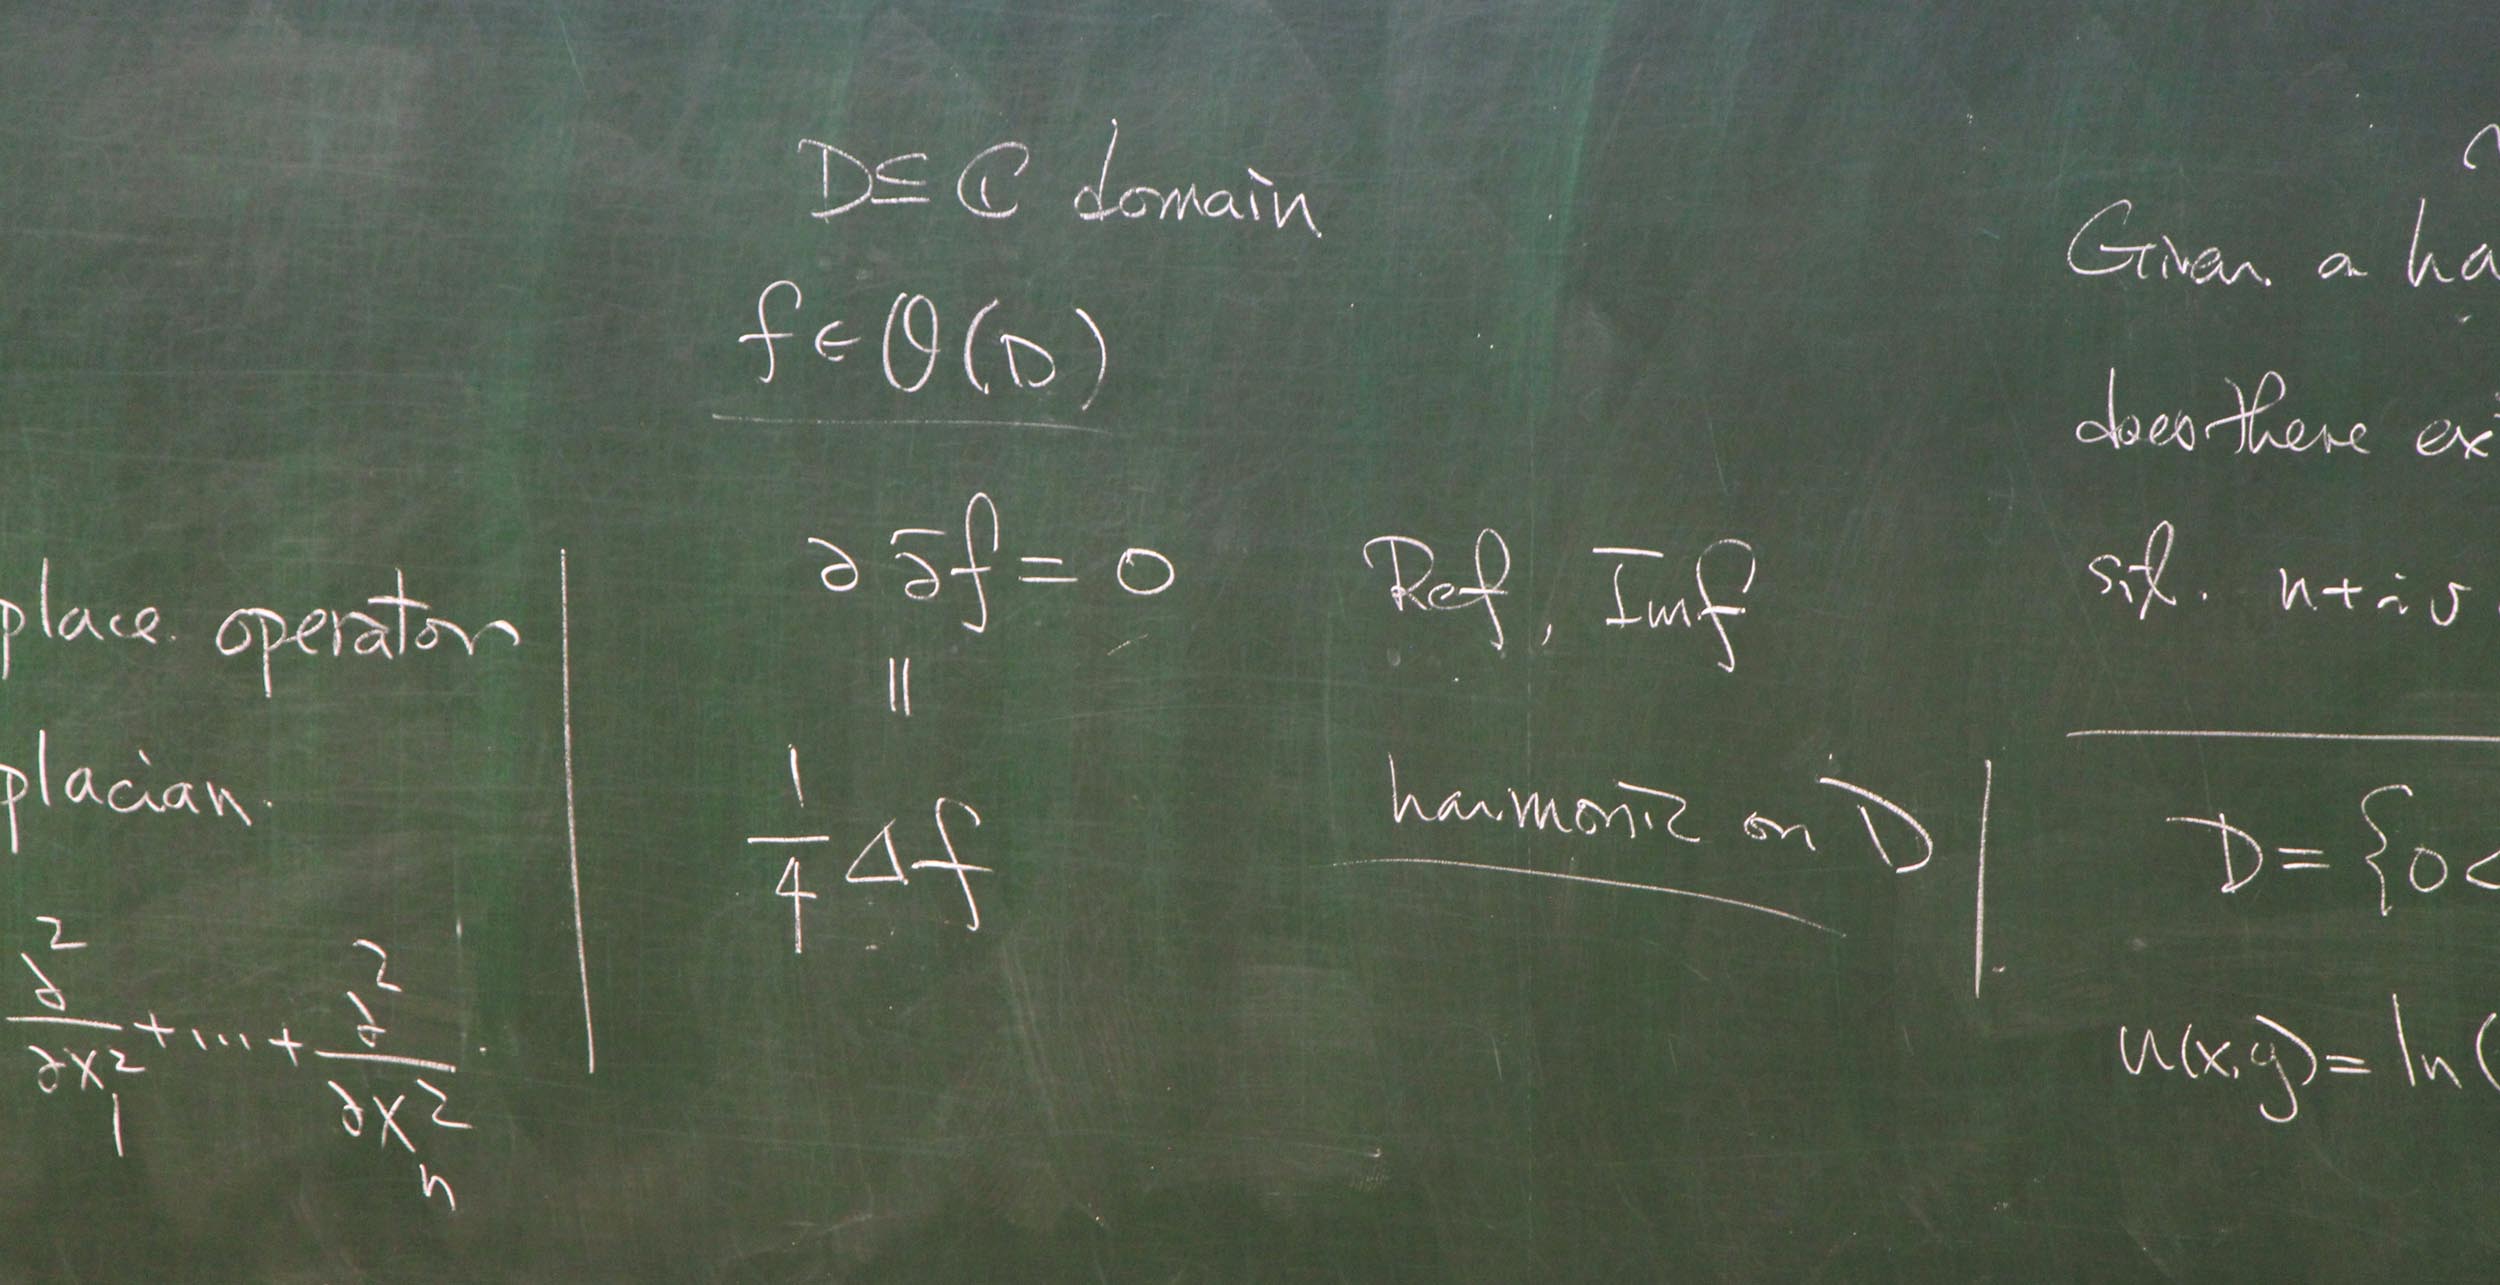 place operator
placian.
∂²/∂x₁² + ... + ∂²/∂xₙ²
D ⊆ ℂ domain
f ∈ O(D)
∂ ∂̄f = 0
||
1/4 Δf
Re f, Im f
harmonic on D
Given a ha
does there ex
s.t. u+iv
D = {0<
u(x,y) = ln(